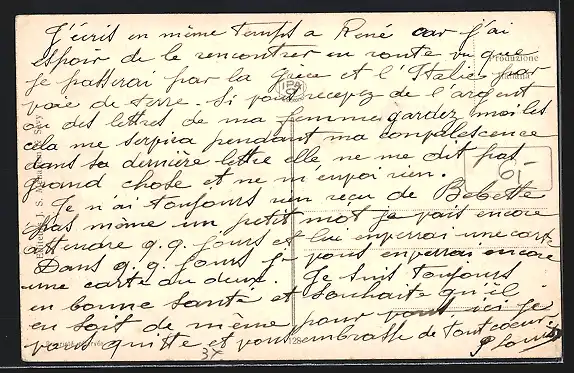 J'écris en même temps a René car j'ai
espoir de le rencontrer en route vu que
je passerai par la Grèce et l'Italie par
voie de terre. Si vous recevez de l'argent
ou des lettres de ma femme gardez moi les
cela me servira pendant ma convalescence
dans sa dernière lettre elle ne me dit pas
grand chose et ne m'envoi rien.
Je n'ai toujours rien reçu de Bebette
pas même un petit mot je vais encore
attendre q.q. jours et lui enverrai une carte
Dans q.q. jours je vous enverrai encore
une carte ou deux. Je suis toujours
en bonne santé et souhaite qu'il
en soit de même pour vous ici je
vous quitte et vous embrasse de tout coeur
Produzione
Italiana
IPA
19-
3x
128